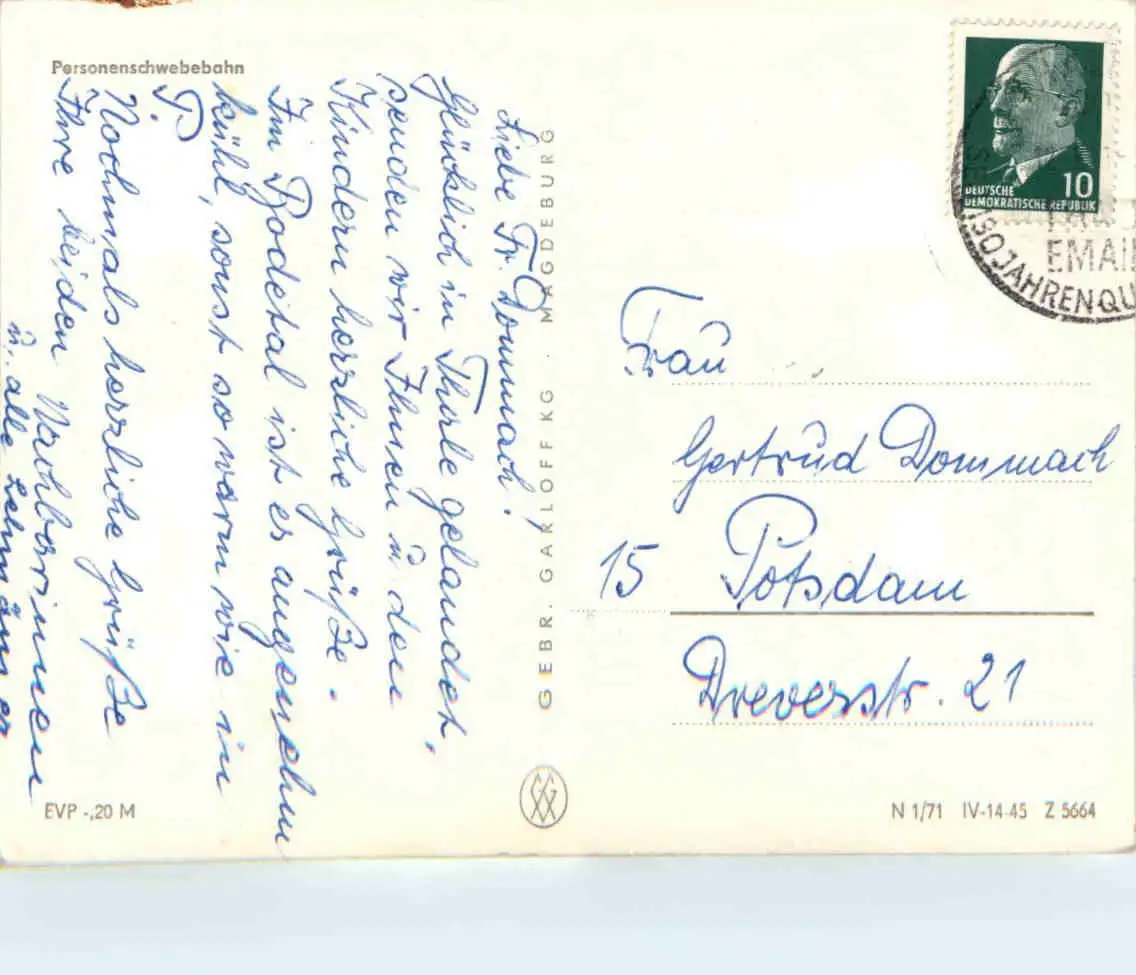 Personenschwebebahn
Liebe Fr. Dommach!
Glücklich in Thale gelandet,
senden wir Ihnen u. den
Kindern herzliche Grüße.
Im Bodetal ist es angenehm
kühl, sonst so warm wie in
P.
Nochmals herzliche Grüße
Ihre beiden Nachbarinnen
u. alle
GEBR. GARLOFF KG · MAGDEBURG
DEUTSCHE
DEMOKRATISCHE REPUBLIK
10
EMAI
150 JAHREN QU
Frau
Gertrud Dommach
15 Potsdam
Dreverstr. 21
EVP -,20 M
N 1/71 IV-14-45 Z 5664